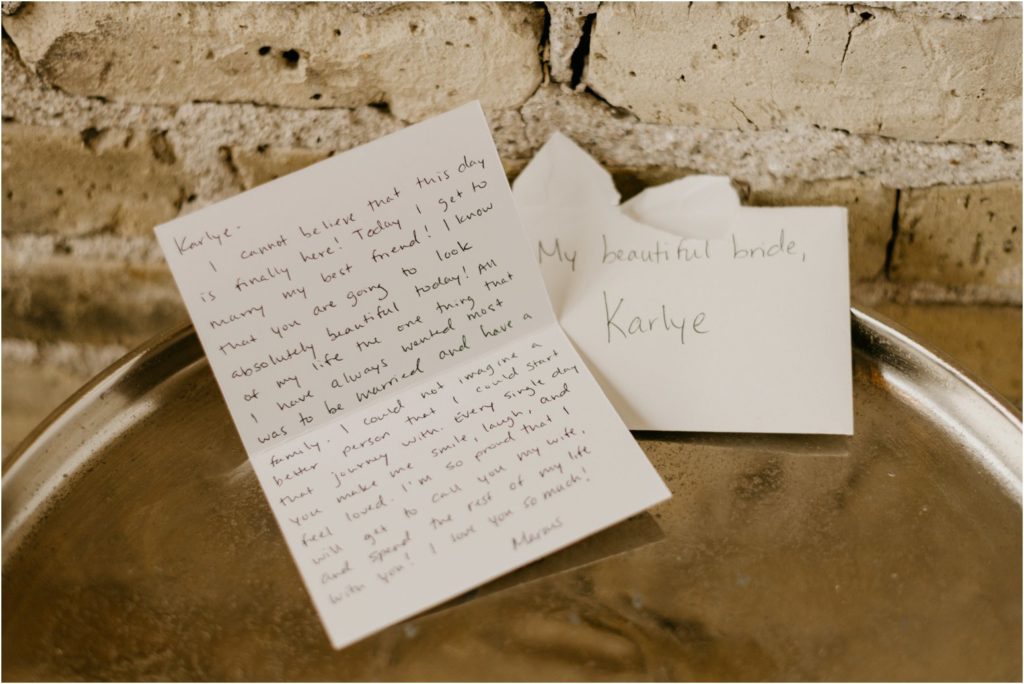 Karlye-
I cannot believe that this day
is finally here! Today I get to
marry my best friend! I know
that you are going to look
absolutely beautiful today! All
of my life the one thing that
I have always wanted most
was to be married and have a
family. I could not imagine a
better person that I could start
that journey with. Every single day
you make me smile, laugh, and
feel loved. I'm so proud that I
will get to call you my wife,
and spend the rest of my life
with you! I love you so much!
Marcus
My beautiful bride,
Karlye